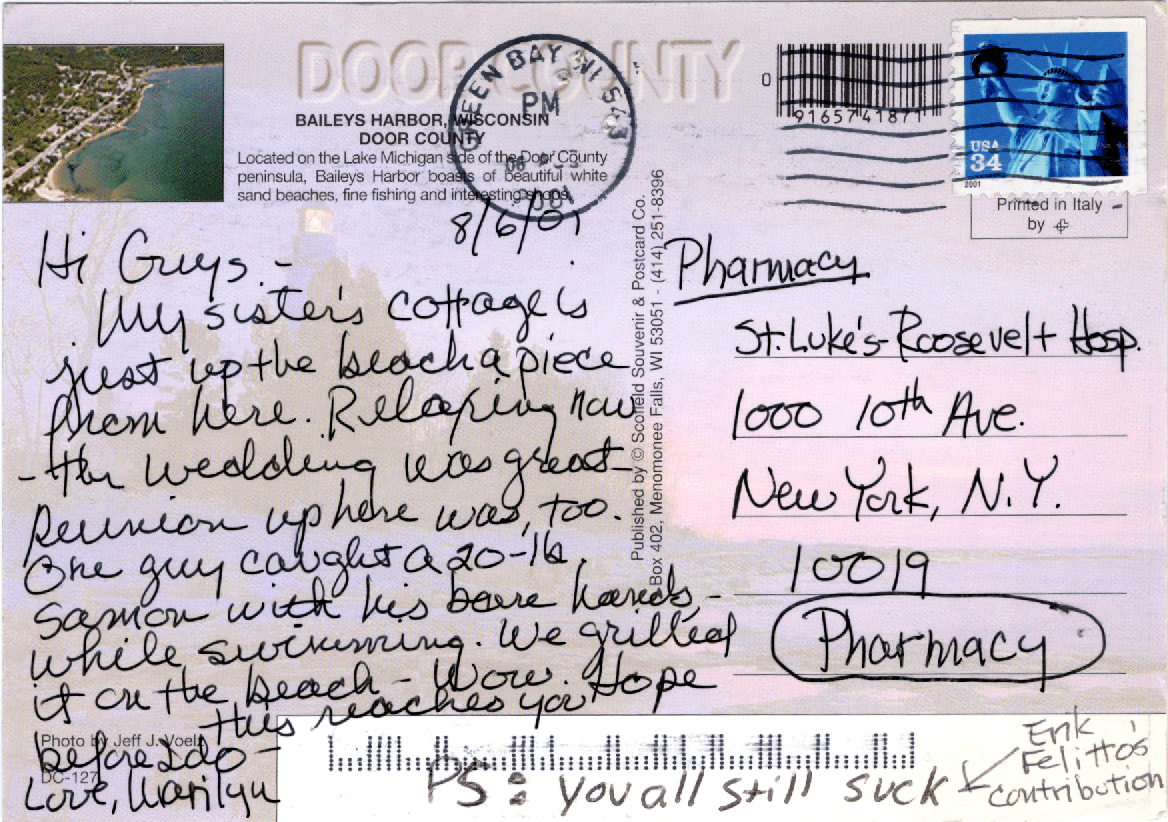 DOOR COUNTY
BAILEYS HARBOR, WISCONSIN
DOOR COUNTY
Located on the Lake Michigan side of the Door County
peninsula, Baileys Harbor boasts of beautiful white
sand beaches, fine fishing and interesting shops.
GREEN BAY WI 543
PM
2001
0
9165741871
USA
34
2001
Printed in Italy
by
8/6/01
Hi Guys -
My sister's cottage is
just up the beach a piece
from here. Relaxing now
- the wedding was great -
Reunion up here was, too.
One guy caught a 20-lb.
Samon with his bare hands, -
while swimming. We grilled
it on the beach - Wow. Hope
this reaches you
before I do -
Love, Marilyn
Photo by Jeff J. Voelz
DC-127
Published by © Scofield Souvenir & Postcard Co.
Box 402, Menomonee Falls, WI 53051 - (414) 251-8396
Pharmacy
St. Luke's-Roosevelt Hosp.
1000 10th Ave.
New York, N.Y.
10019
Pharmacy
PS: you all still suck
Erik
Felitto's
contribution